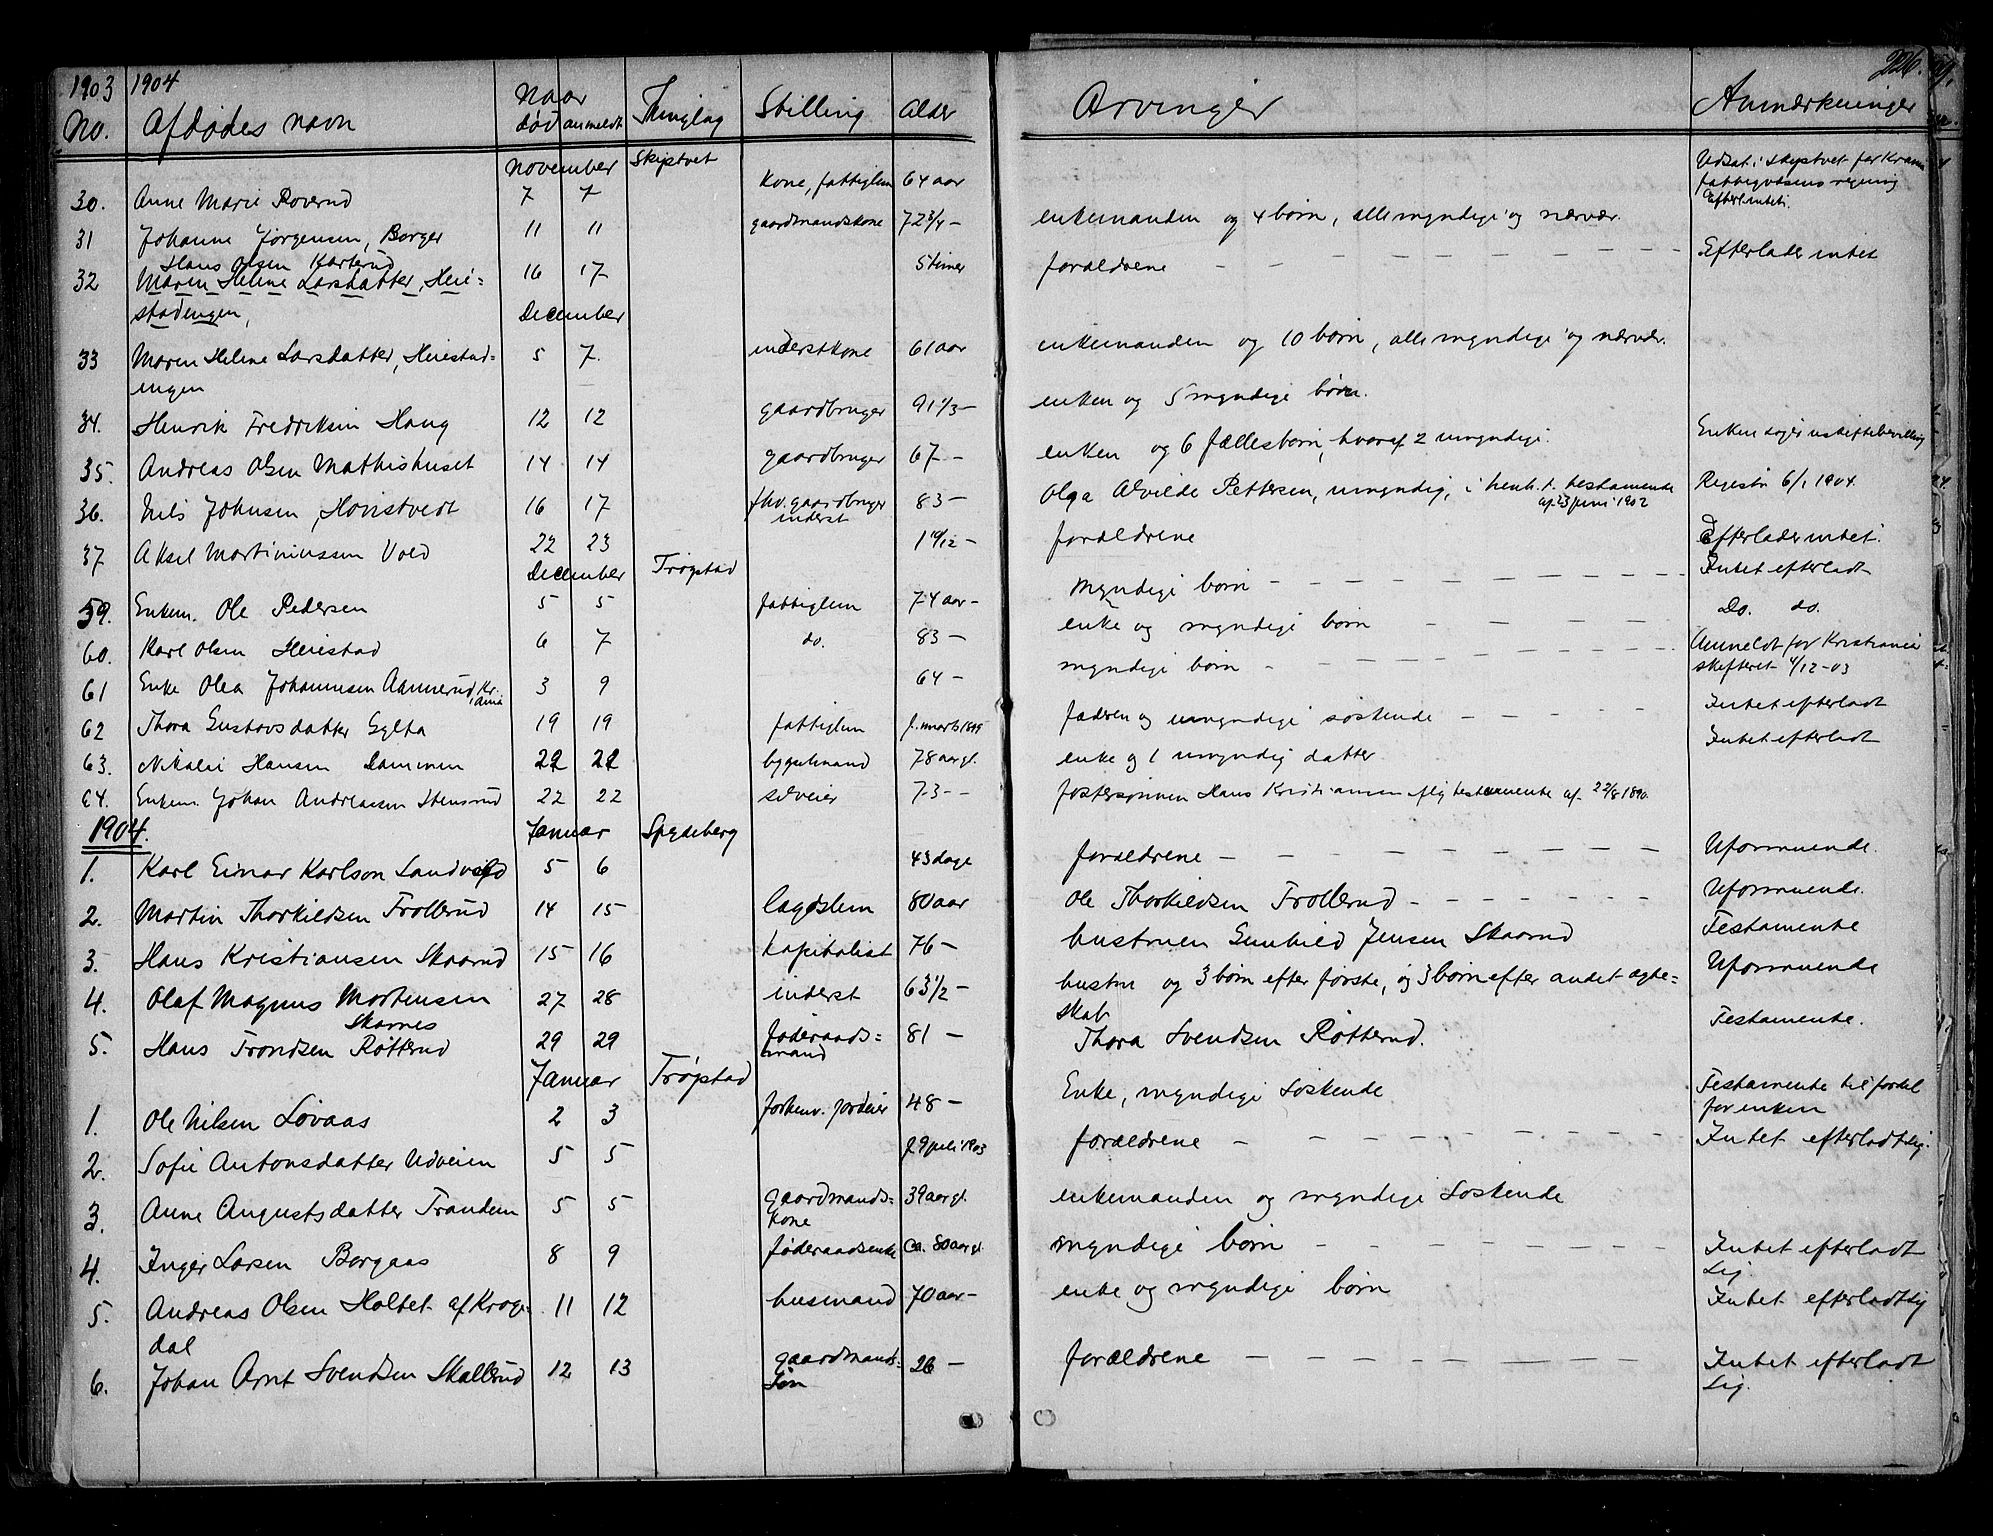 1903 1904 226.
No. Afdødes navn Naar død anmeldt Thinglag Stilling Alder Arvinger Anmærkninger
November Skiptvet
30. Anne Marie Roverud 7 7 Kone, fattiglem 64 aar Udsat i Skiptvet for Kraakst fattigvæsens regning Efterl. intet.
31 Johanne Jørgensen, Borger 11 11 gaardmandskone 72 3/4 – enkemanden og 4 børn, alle myndige og nærvær.
32 Hans Olsen Karterud 16 17 5 timer forældrene – – – Efterlader intet
Maren Helene Larsdatter, Heie-
stadengen,
December
33 Maren Helene Larsdatter, Heiestad- 5 7. inderstkone 61 aar enkemanden og 10 børn, alle myndige og nærvær.
engen
34. Henrik Fredriksen Haug 12 12 gaardbruger 91 1/3 – enken og 5 myndige børn.
35. Andreas Olsen Mathishuset 14 14 gaardbruger 67 – enken og 6 fællesbørn, hvoraf 2 umyndige. Enken søger uskiftebevilling
36. Nils Johnsen, Hovistvedt 16 17 fhv. gaardbruger inderst 83 – Olga Alvilde Pettersen, umyndig, i henh. t. testamente af 23 juni 1902 Registr 6/1 1904.
37 Aksel Martiniussen Vold 22 23 1 10/12 – forældrene Efterlader intet.
December Trøgstad
59. Enkem. Ole Pedersen 5 5 fattiglem 74 aar – myndige børn – – – Intet efterladt
60. Karl Olsen Heiestad 6 7 do. 83 – enke og myndige børn – – – Do. do.
61 Enke Olea Johannesen Aamerud, Kr.ania 3 9 64 – myndige børn – – – Anmeldt for Kristiania skifteret 4/12-03
62 Thora Gustavsdatter Gylta 19 19 fattiglem f. marts 1899 faderen og umyndige søskende – – – Intet efterladt
63. Nikolai Hansen Dammen 22 22 bygselmand 78 aar gl. enke og 1 umyndig datter Intet efterladt
64. Enkem. Johan Andreasen Stensrud 22 22 selveier 73 – – fostersønnen Hans Kristiansen iflg testamente af 22/8 1890.
1904. Januar Spydeberg
1. Karl Einar Karlson Sandvold 5 6 43 dage forældrene – – – Uformuende.
2. Martin Thorkildsen Trollerud 14 15 lægdslem 80 aar Ole Thorkildsen Trollerud – – – Uformuende.
3. Hans Kristiansen Skaarud 15 16 Kapitalist 76 – hustruen Gunhild Jensen Skaarud Testamente
4. Olaf Magnus Mortensen Skarnes 27 28 inderst 63 1/2 – hustru og 3 børn efter første, og 3 børn efter andet ægte- Uformuende
skab
5. Hans Trondsen Røtterud 29 29 føderaads- 81 – Thora Svendsen Røtterud. Testamente.
mand
Januar Trøgstad
1. Ole Nilsen Løvaas 2 3 forhenv. jordeier 48 – Enke, myndige Søskende Testamente til fordel for enken
2. Sofie Antonsdatter Udveien 5 5 f. 9 juli 1903 forældrene – – – Intet efterladt sig.
3. Anne Augustsdatter Trandem 5 5 gaardmands- 39 aar gl. enkemanden og myndige Søskende
kone
4. Inger Larsen Borgaas 8 9 føderaadsenke Ca. 80 aar gl. myndige børn – – – Intet efterladt
Sig.
5. Andreas Olsen Holtet af Kroge- 11 12 husmand 70 aar – enke og myndige børn Intet efterladt sig
dal
6. Johan Arnt Svendsen Skallerud 12 13 gaardmands- 26 – forældrene – – – Intet efterladt
Søn Sig.